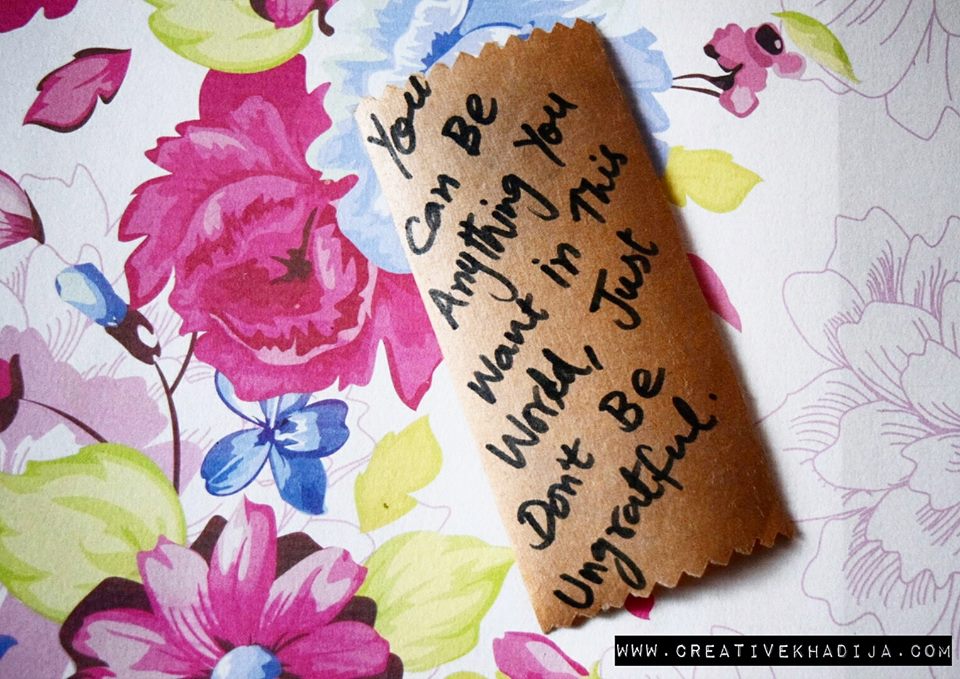 You
Can Be
Anything You
Want in This
World, Just
Don't Be
Ungratful.
WWW.CREATIVEKHADIJA.COM